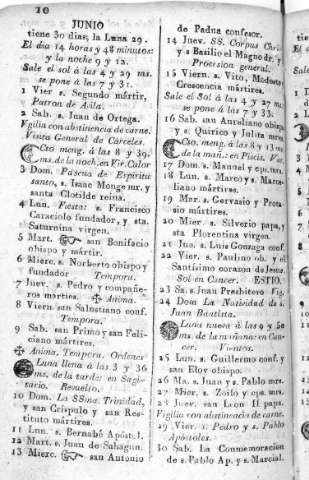 10
JUNIO
tiene 30 dias, la Luna 29.
El dia 14 horas y 48 minutos:
y la noche 9 y 12.
Sale el sol á las 4 y 29 ms.
se pone á las 7 y 31.
1 Vier s. Segundo mártir,
Patron de Avila.
2 Sab. s. Juan de Ortega.
Vigilia con abstinencia de carne.
Visita General de Carceles.
Cto. meng. á las 8 y 39
ms. de la noch. en Vir. Calor
3 Dom. Pascua de Espiritu
santo, s. Isaac Monge mr. y
santa Clotilde reina.
4 Lun. Fiesta: s. Francisco
Caraciolo fundador, y sta.
Saturnina virgen.
5 Mart. san Bonifacio
obispo y mártir.
6 Mierc. s. Norberto obispo y
fundador Tempora.
7 Juev. s. Pedro y compañe-
ros martires. ✠ Anima.
8 Viern san Salustiano conf.
Tempora.
9 Sab. san Primo y san Feli-
ciano mártires.
✠ Anima. Tempora. Ordenes
Luna llena á las 3 y 36
ms. de la tarde: en Sagi-
tario. Revuelto.
10 Dom. La SSma. Trinidad,
y san Críspulo y san Res-
tituto mártires.
11 Lun. s. Bernabé Apóst.l.
12 Mart. s. Juan de Sahagun.
13 Mierc. san Antonio
de Padua confesor.
14 Juev. SS. Corpus Chris
y s. Basilio el Magno dr.
Procesion general.
15 Viern. s. Vito, Modesto
Crescencia mártires.
Sale el Sol á las 4 y 27 ms.
se pone á las 7 y 33.
16 Sab. san Aureliano obispo
y s. Quirico y Julita mrs
Cto. meng. á las 8 y 13 ms
de la mañ.: en Piscis.
17 Dom. s. Manuel y cps. mrs.
18 Lun. s. Marco y s. Marce-
liano mártires.
19 Mar. s. Gervasio y Prota-
sio mártires.
20 Mier. s. Silverio papa, y
sta Florentina virgen.
21 Jue. s. Luis Gonzaga conf.
22 Vier. s. Paulino ob. y el
Santísimo corazon de Jesus.
Sol en Cancer. ESTIO.
23 Sa. s. Juan Presbitero Vig.
24 Dom La Natividad de s.
Juan Bautista.
Luna nueva á las 9 y 50
ms. de la mañana: en Can-
cer. Vientos.
25 Lun. s. Guillermo conf. y
san Eloy obispo.
26 Ma. s. Juan y s. Pablo mrs.
27 Mier s. Zoilo y cps. mrs.
28 Juev. san Leon II papa.
Vigilia con abstinencia de carne.
29 Vier. s. Pedro y s. Pablo
Apóstoles.
30 Sab. La Conmemoracion
de s. Pablo Ap. y s. Marcial.